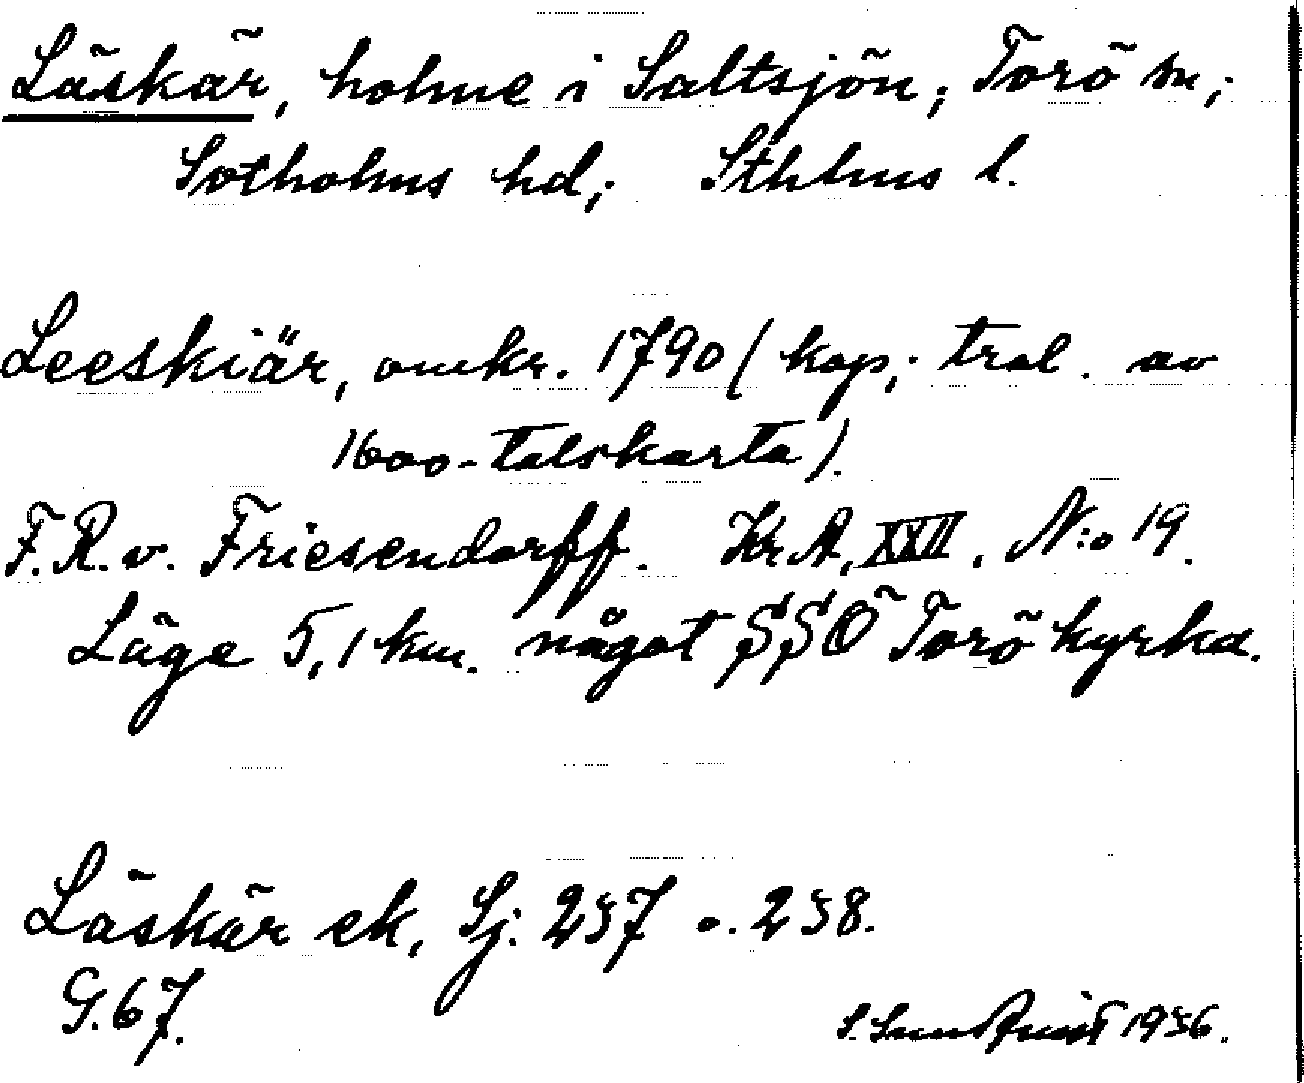 Läskär, holme i Saltsjön; Torö sn;
Sotholms hd; Sthlms l.
Leeskiär, omkr. 1790 (kop; trol. av
1600-talskarta).
F.R.v. Friesendorff. Kr.A, XXII, N:o 19.
Läge 5,1 km. något SSÖ Torö kyrka.
Läskär ek, Sj. 257 o. 258.
G.67.
1956.